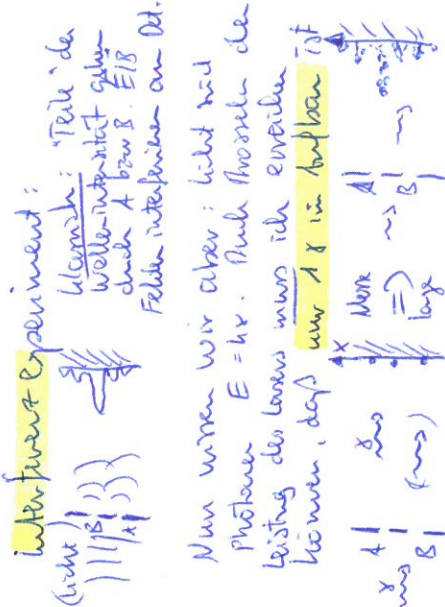 Interferenzexperiment:
(Licht)
B
A
klassisch: "Teile" der
Wellenintensität gehen
durch A bzw B. E/B
Felder interferieren am Det.
Nun wissen wir aber: Licht sind
Photonen E = hν. Durch Drosseln der
Leistung des Lasers muss ich erreichen
können, daß nur 1 γ im Aufbau ist
γ
A
B
γ
x
lange
⇒
A
B